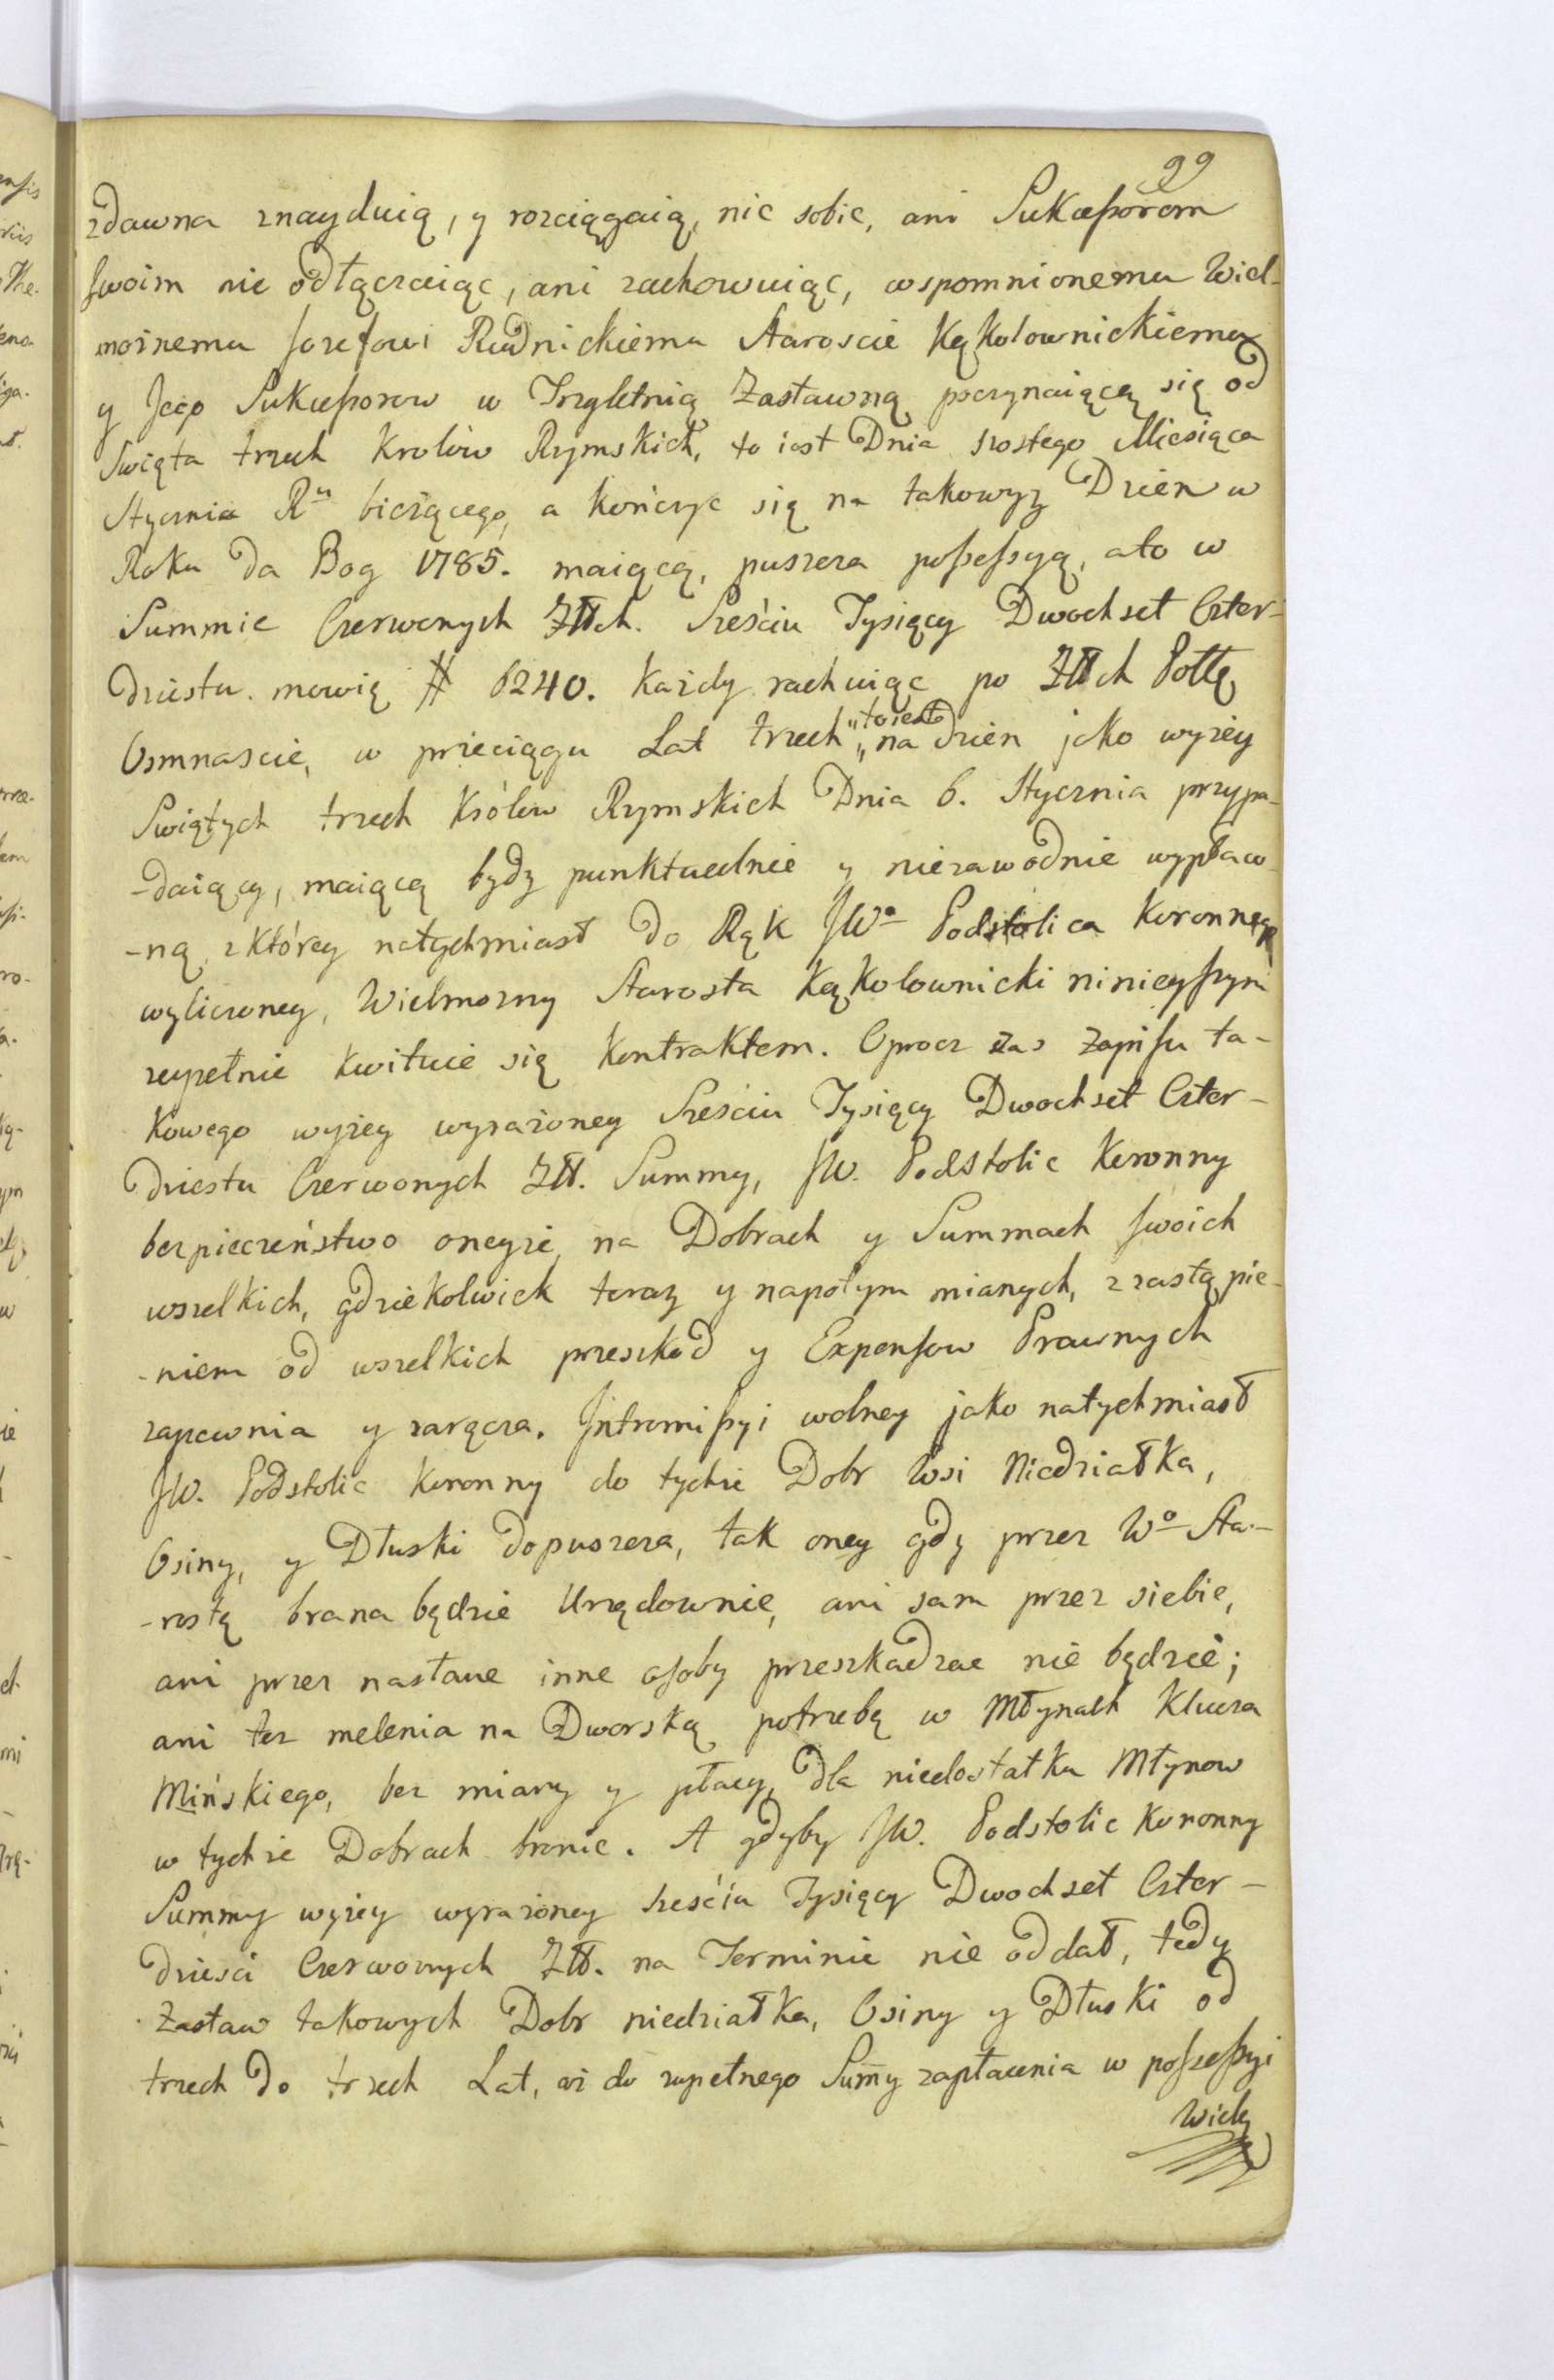 99
zdawna znayduią, y rozciągaią, nic sobie, ani Sukcessorom
swoim nie odłączaiąc, ani zachowuiąc, wspomnionemu Wiel-
możnemu Jozefowi Rudnickiemu Staroscie Kąkolownickiemu
y Jego Sukcessorow w Trzyletnią Zastawną poczynaiącą się od
Swięta trzech Krolów Rzymskich, to iest Dnia szostego Miesiąca
Stycznia Ru bieżącego, a kończyc się na takowyz Dzien w
Roku da Bog 1785. maiącą, puszcza possessyą, a to w
Summie Czerwonych Złłch. Sześciu Tysięcy Dwochset Czter-
dziestu. mowię # 6240. Każdy rachuiąc po Złłch Polłę
Osmnascie, w przeciągu Lat trzech „to iest„ na dzien jako wyżey
Swiętych trzech Królow Rzymskich Dnia 6. Stycznia przypa-
-daiący, maiącą bydz punktualnie y niezawodnie wypłaco-
-ną, z którey natychmiast do Rąk JWo Podstolica Koronnego
wyliczoney, Wielmozny Starosta Kąkolownicki ninieyszym
zupełnie kwituie się Kontraktem. Oprocz zas Zapisu ta-
kowego wyżey wyrażoney Sześciu Tysięcy Dwochset Czter-
dziestu Czerwonych Złł. Summy, JW. Podstolic Koronny
bezpieczeństwo oneyże, na Dobrach y Summach swoich
wszelkich, gdziekolwiek teraz y napotym mianych, z zastąpie-
-niem od wszelkich przeszkod y Expensow Prawnych
zapewnia y zaręcza. Jntromissyi wolney jako natychmiast
JW. Podstolic Koronny do tychże Dobr Wsi Niedziałka,
Osiny, y Dłuski dopuszcza, tak oney gdy przez Wo Sta-
-rostę brana będzie Urzędownie, ani sam przez siebie,
ani przez nasłane inne osoby przeszkadzac nie będzie;
ani tez melenia na Dworską potrzebę w Młynach Klucza
Mińskiego, bez miary y płacy, dla niedostatku Młynow
w tychże Dobrach bronic. A gdyby JW. Podstolic Koronny
Summy wyżey wyrażoney sześciu Tysięcy Dwochset Czter-
dziesci Czerwonych Złł. na Terminie nie oddał, tedy
Zastaw takowych Dobr niedziałka, Osiny y Dłuski od
trzech do trzech Lat, aż do zupełnego Sum̄y zapłacenia w possessyi